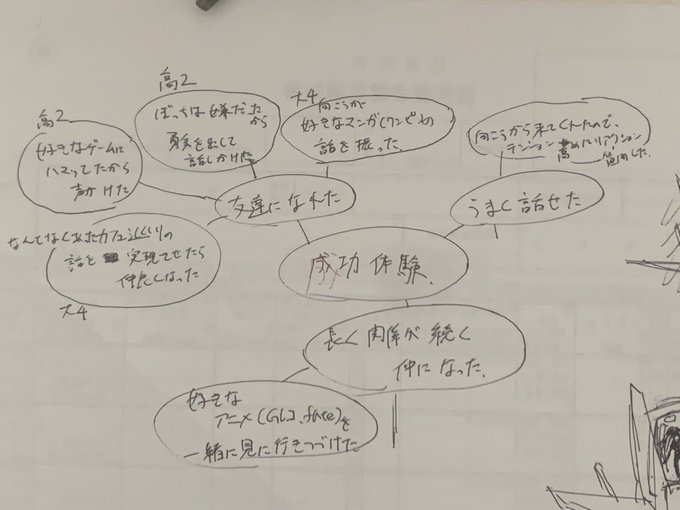 高2
ぼっちは嫌だったから
勇気を出して
話しかけた
大4
向こうが
好きなマンガ(ワンピ)の
話を振った
向こうから来てくれたので、
テンション高めにリアクション
高2
好きなゲームに
ハマってたから
声かけた
友達になれた
うまく話せた
カフェ巡りの
話を実現させたら
仲良くなった
大4
成功体験
長く関係が続く
仲になった
好きな
アニメ
一緒に見に行きつづけた